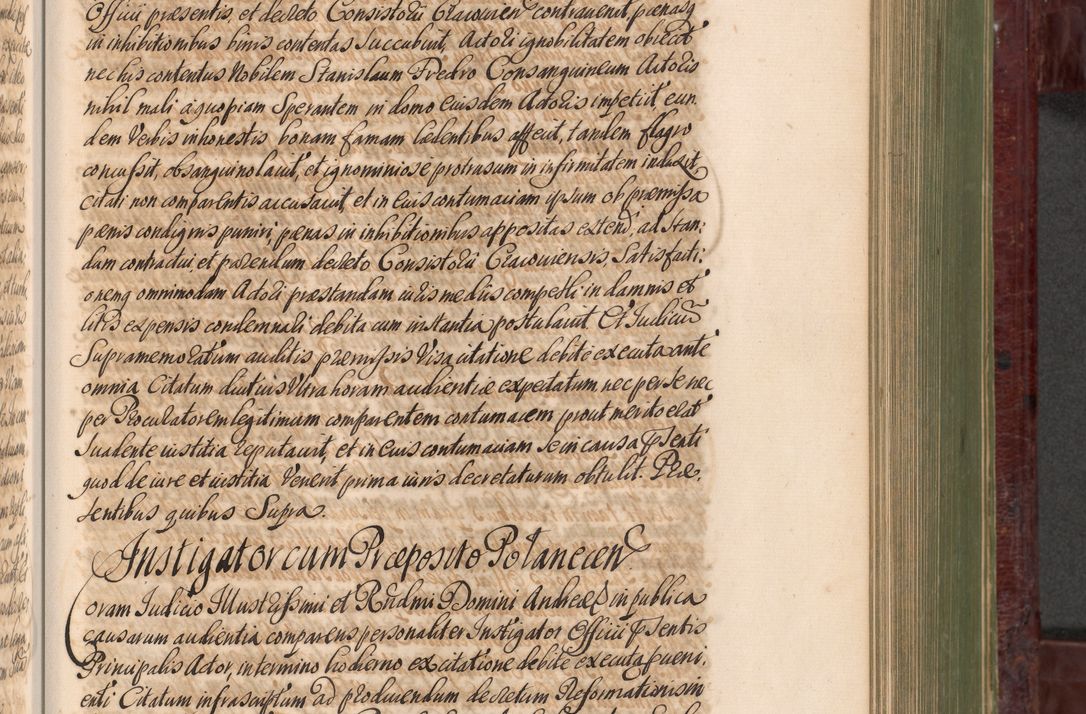 Officii præsentis, et decreto Consistorii Cracovien contravenit, pœnasq
in inhibitionibus binis contentas succubuit, Actori ignobilitatem obiecit
nec his contentus Nobilem Stanislaum Fredro Consanguineum Actoris
nihil mali a quopiam Sperantem in domo eiusdem Actoris impetiit, eun
dem Verbis inhonestis bonam famam lædentibus affecit, tandem flagro
concussit, obsanguinolavit, et ignominiose protrasum in infirmitatem induxit,
citati non comparentis accusavit, et in eius contumaciam ipsum ob præmissa
pœnis condignis puniri, pœnas in inhibitionibus appositas extendi, ad stan-
dum contractui, et parendum decreto Consistorii Cracoviensis, Satisfacti:
onemq omnimodam Actori præstandam iuris mediis compelli in damnis et
litis expensis condemnari debita cum instantia postulavit. Et Iudiciu
Supramemoratum auditis præmissis Visa citatione debite executa ante
omnia Citatum diutius Ultra horam audientiæ expectatum nec per se nec
per Procuratorem legitimum comparentem contumacem prout merito erat
suadente iustitia reputavit, et in eius contumaciam se in causa psenti
quod de iure et iustitia Venerit prima iuris decretaturum obtulit. Præ-
sentibus quibus Supra.
Instigator cum Præposito Polanecen
Coram Iudicio Illustrissimi et Rndmi Domini Andreæ in publica
causarum audientia comparens personaliter Instigator Officii psentis
Principalis Actor, in termino hodierno ex citatione debite executa pveni.
enti Citatum infrascriptum ad producendum decretum Reformationis in